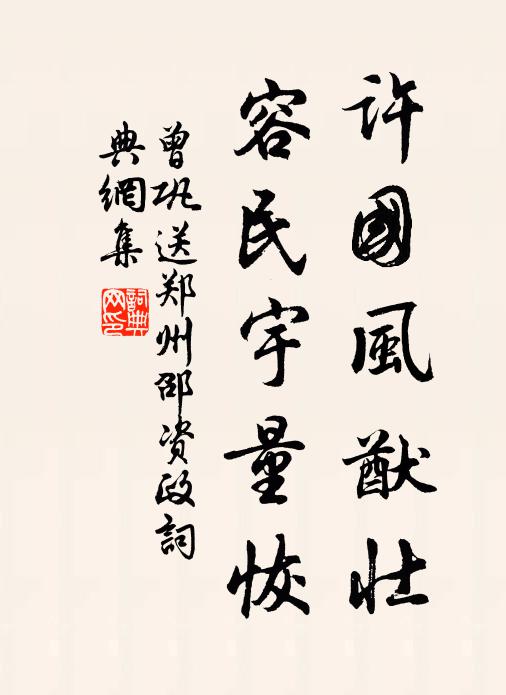 許國風猷壯
容民宇量恢
曾巩送郑州邵资政詞
典網集
詞典
网印